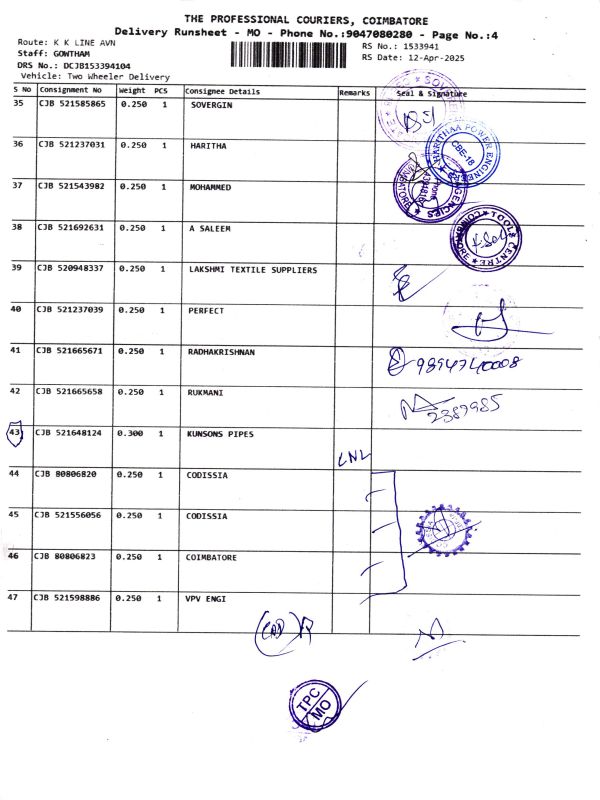 THE PROFESSIONAL COURIERS, COIMBATORE
Delivery Runsheet - MO - Phone No.:9047080280 - Page No.:4
Route: K K LINE AVN
RS No.: 1533941
Staff: GOWTHAM
RS Date: 12-Apr-2025
DRS No.: DCJB153394104
Vehicle: Two Wheeler Delivery
S No Consignment No Weight PCS Consignee Details Remarks Seal & Signature
35 CJB 521585865 0.250 1 SOVERGIN
36 CJB 521237031 0.250 1 HARITHA
HARITHAA POWER ENGINEER CBE-18
37 CJB 521543982 0.250 1 MOHAMMED
AGENCIES
38 CJB 521692631 0.250 1 A SALEEM
TOOLS CENTRE
39 CJB 520948337 0.250 1 LAKSHMI TEXTILE SUPPLIERS
40 CJB 521237039 0.250 1 PERFECT
41 CJB 521665671 0.250 1 RADHAKRISHNAN
42 CJB 521665658 0.250 1 RUKMANI
2387985
43 CJB 521648124 0.300 1 KUNSONS PIPES
LNL
44 CJB 80806820 0.250 1 CODISSIA
45 CJB 521556056 0.250 1 CODISSIA
46 CJB 80806823 0.250 1 COIMBATORE
47 CJB 521598886 0.250 1 VPV ENGI
TPC
MO